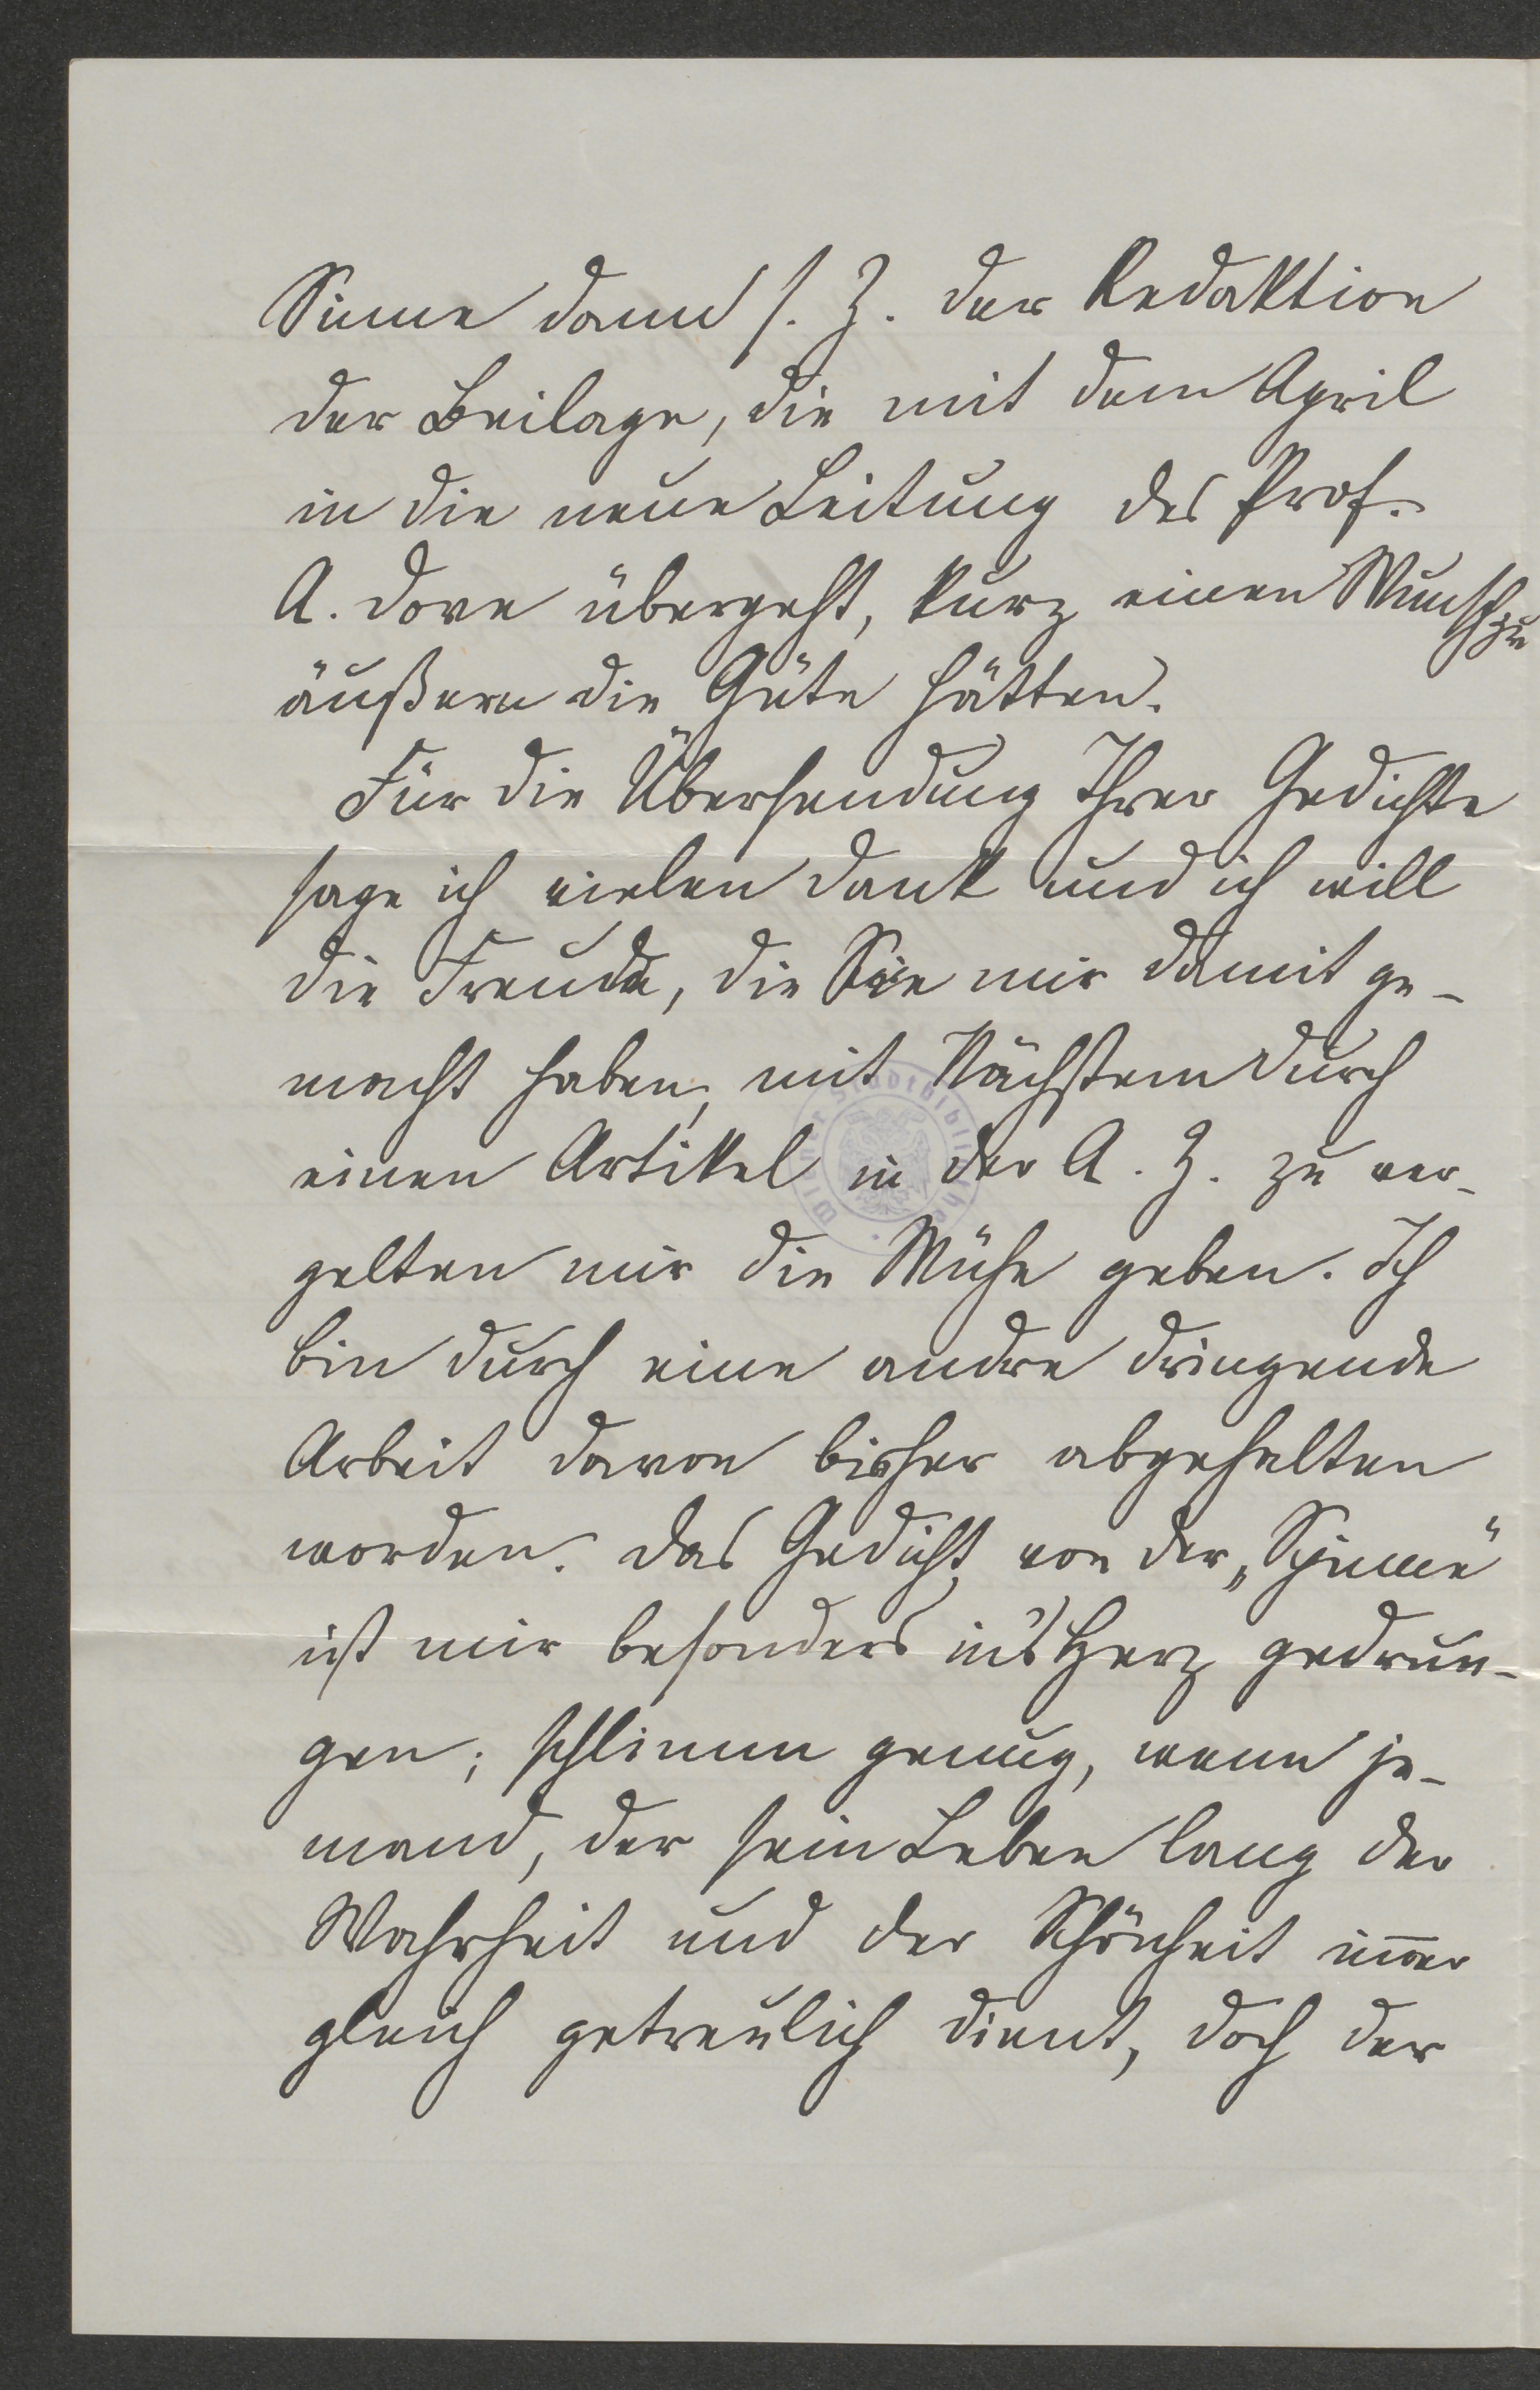 Sinne dann s. Z. der Redaktion
der Beilage, die mit dem April
in die neue Leitung des Prof.
A. Dove übergeht, kurz einen Wunsch zu
äußern die Güte hätten.
Für die Übersendung Ihrer Gedichte
sage ich vielen Dank und ich will
die Freude, die Sie mir damit ge-
macht haben, mit Nächstem durch
einen Artikel in der A. Z. zu ver-
gelten mir die Mühe geben. Ich
bin durch eine andre dringende
Arbeit davon bisher abgehalten
worden. Das Gedicht von der „Spinne"
ist mir besonders in's Herz gedrun-
gen; schlimm genug, wenn je-
mand, der sein Leben lang der
Wahrheit und der Schönheit immer
gleich getreulich dient, doch der
Wiener Stadtbibliothek